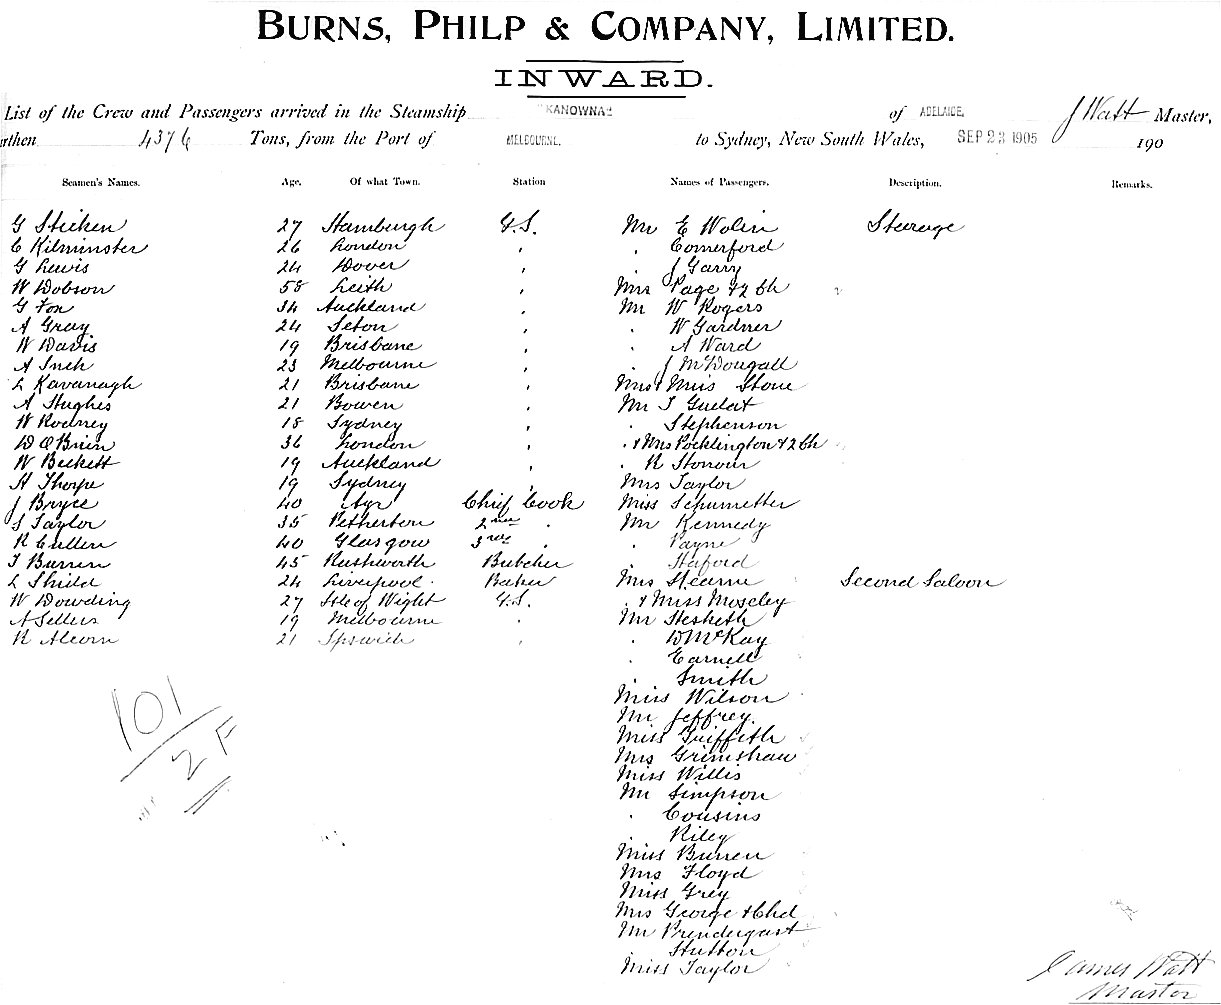 BURNS, PHILP & COMPANY, LIMITED.
INWARD.
List of the Crew and Passengers arrived in the Steamship "KANOWNA" of ADELAIDE, J Watt Master,
rthen 4376 Tons, from the Port of MELBOURNE. to Sydney, New South Wales, SEP 23 1905 190
Seamen's Names. Age. Of what Town. Station Names of Passengers. Description. Remarks.
G Stichen 27 Hamburgh G.S. Mr E Wolin Steerage
C Kilminster 26 London " . Comerford
G Lewis 24 Dover " . J Garry
W Dobson 58 Leith " Mrs Page & 2 Ch
G Fox 34 Auckland " Mr W Rogers
A Gray 24 Seton " . W Gardner
W Davis 19 Brisbane " . A Ward
A Inch 23 Melbourne " . J McDougall
L Kavanagh 21 Brisbane " Mrs & Miss Stone
A Hughes 21 Bowen " Mr T Guelat
W Rodney 18 Sydney " . Stephenson
D O'Brien 36 London " . & Mrs Pocklington & 2 Ch
W Beckett 19 Auckland " . R Honour
H Thorpe 19 Sydney " Mrs Taylor
J Bryce 40 Ayr Chief Cook Miss Schumetter
S Taylor 35 Petherton 2nd " Mr Kennedy
R Cullen 40 Glasgow 3rd " . Payne
T Burren 45 Rushworth Butcher . Haford
L Shield 24 Liverpool Baker Mrs Hearne Second Saloon
W Dowding 27 Isle of Wight G.S. . & Miss Moseley
A Sellers 19 Melbourne " Mr Hesketh
R Alcorn 21 Ipswich " . D McKay
. Earnell
. Smith
Miss Wilson
Mr Jeffrey
Miss Griffith
Mrs Grimshaw
Miss Willis
Mr Simpson
. Cousins
. Riley
Miss Burren
Mrs Floyd
Miss Grey
Mrs George & Chd
Mr Prendergast
Hutton
Miss Taylor
101
2 F
James Watt
Master